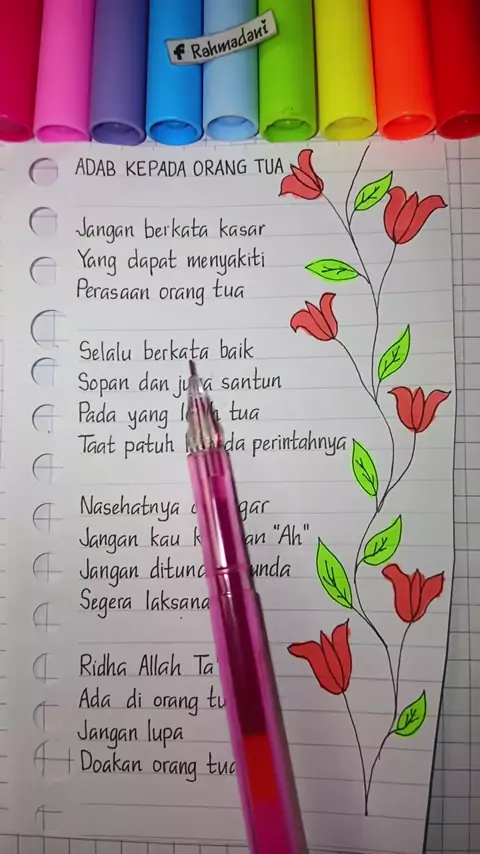 Rahmadani
ADAB KEPADA ORANG TUA
Jangan berkata kasar
Yang dapat menyakiti
Perasaan orang tua
Selalu berkata baik
Sopan dan juga santun
Pada yang lebih tua
Taat patuh perintahnya
Nasehatnya
Jangan kau "Ah"
Jangan ditunda
Segera
Ridha Allah
Ada di orang
Jangan lupa
Doakan orang tua